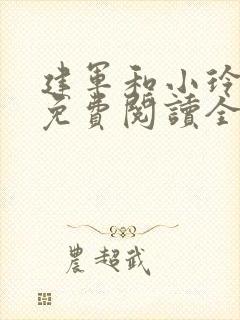 建軍和小玲
免費閱讀全
農超武